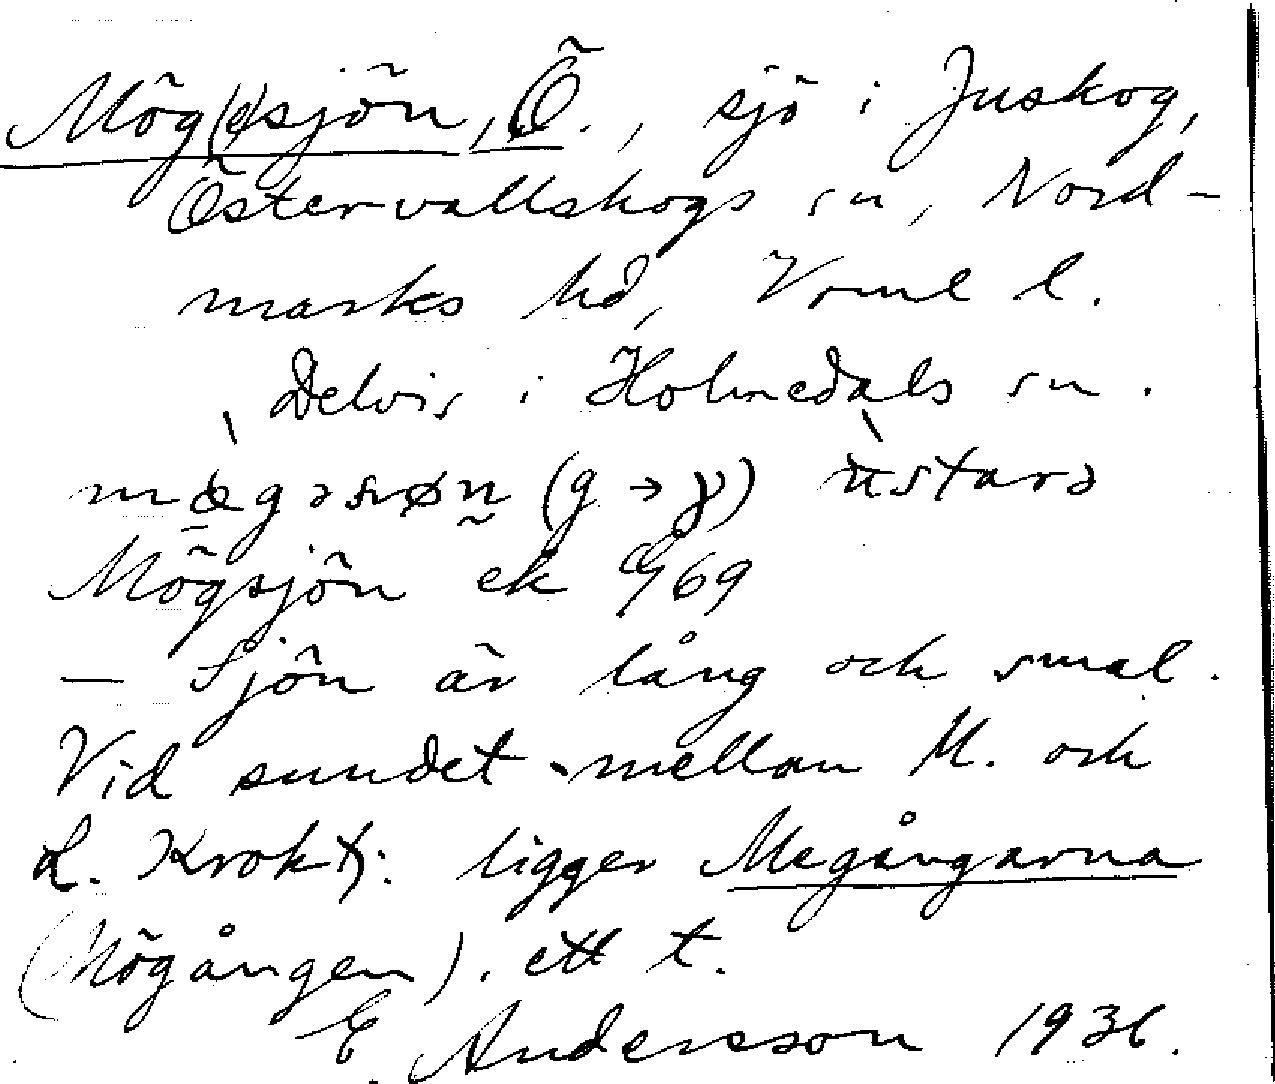 Mög(e)sjön, Ö., sjö i Juskog,
Östervallskogs sn, Nord-
marks hd, Vrml l.
Delvis i Holmedals sn.
Mögsjön ek 969
— Sjön är lång och smal.
Vid sundet mellan M. och
L. Kroktj: ligger Megångarna
(Mögången). ett t.
E. Andersson 1936.